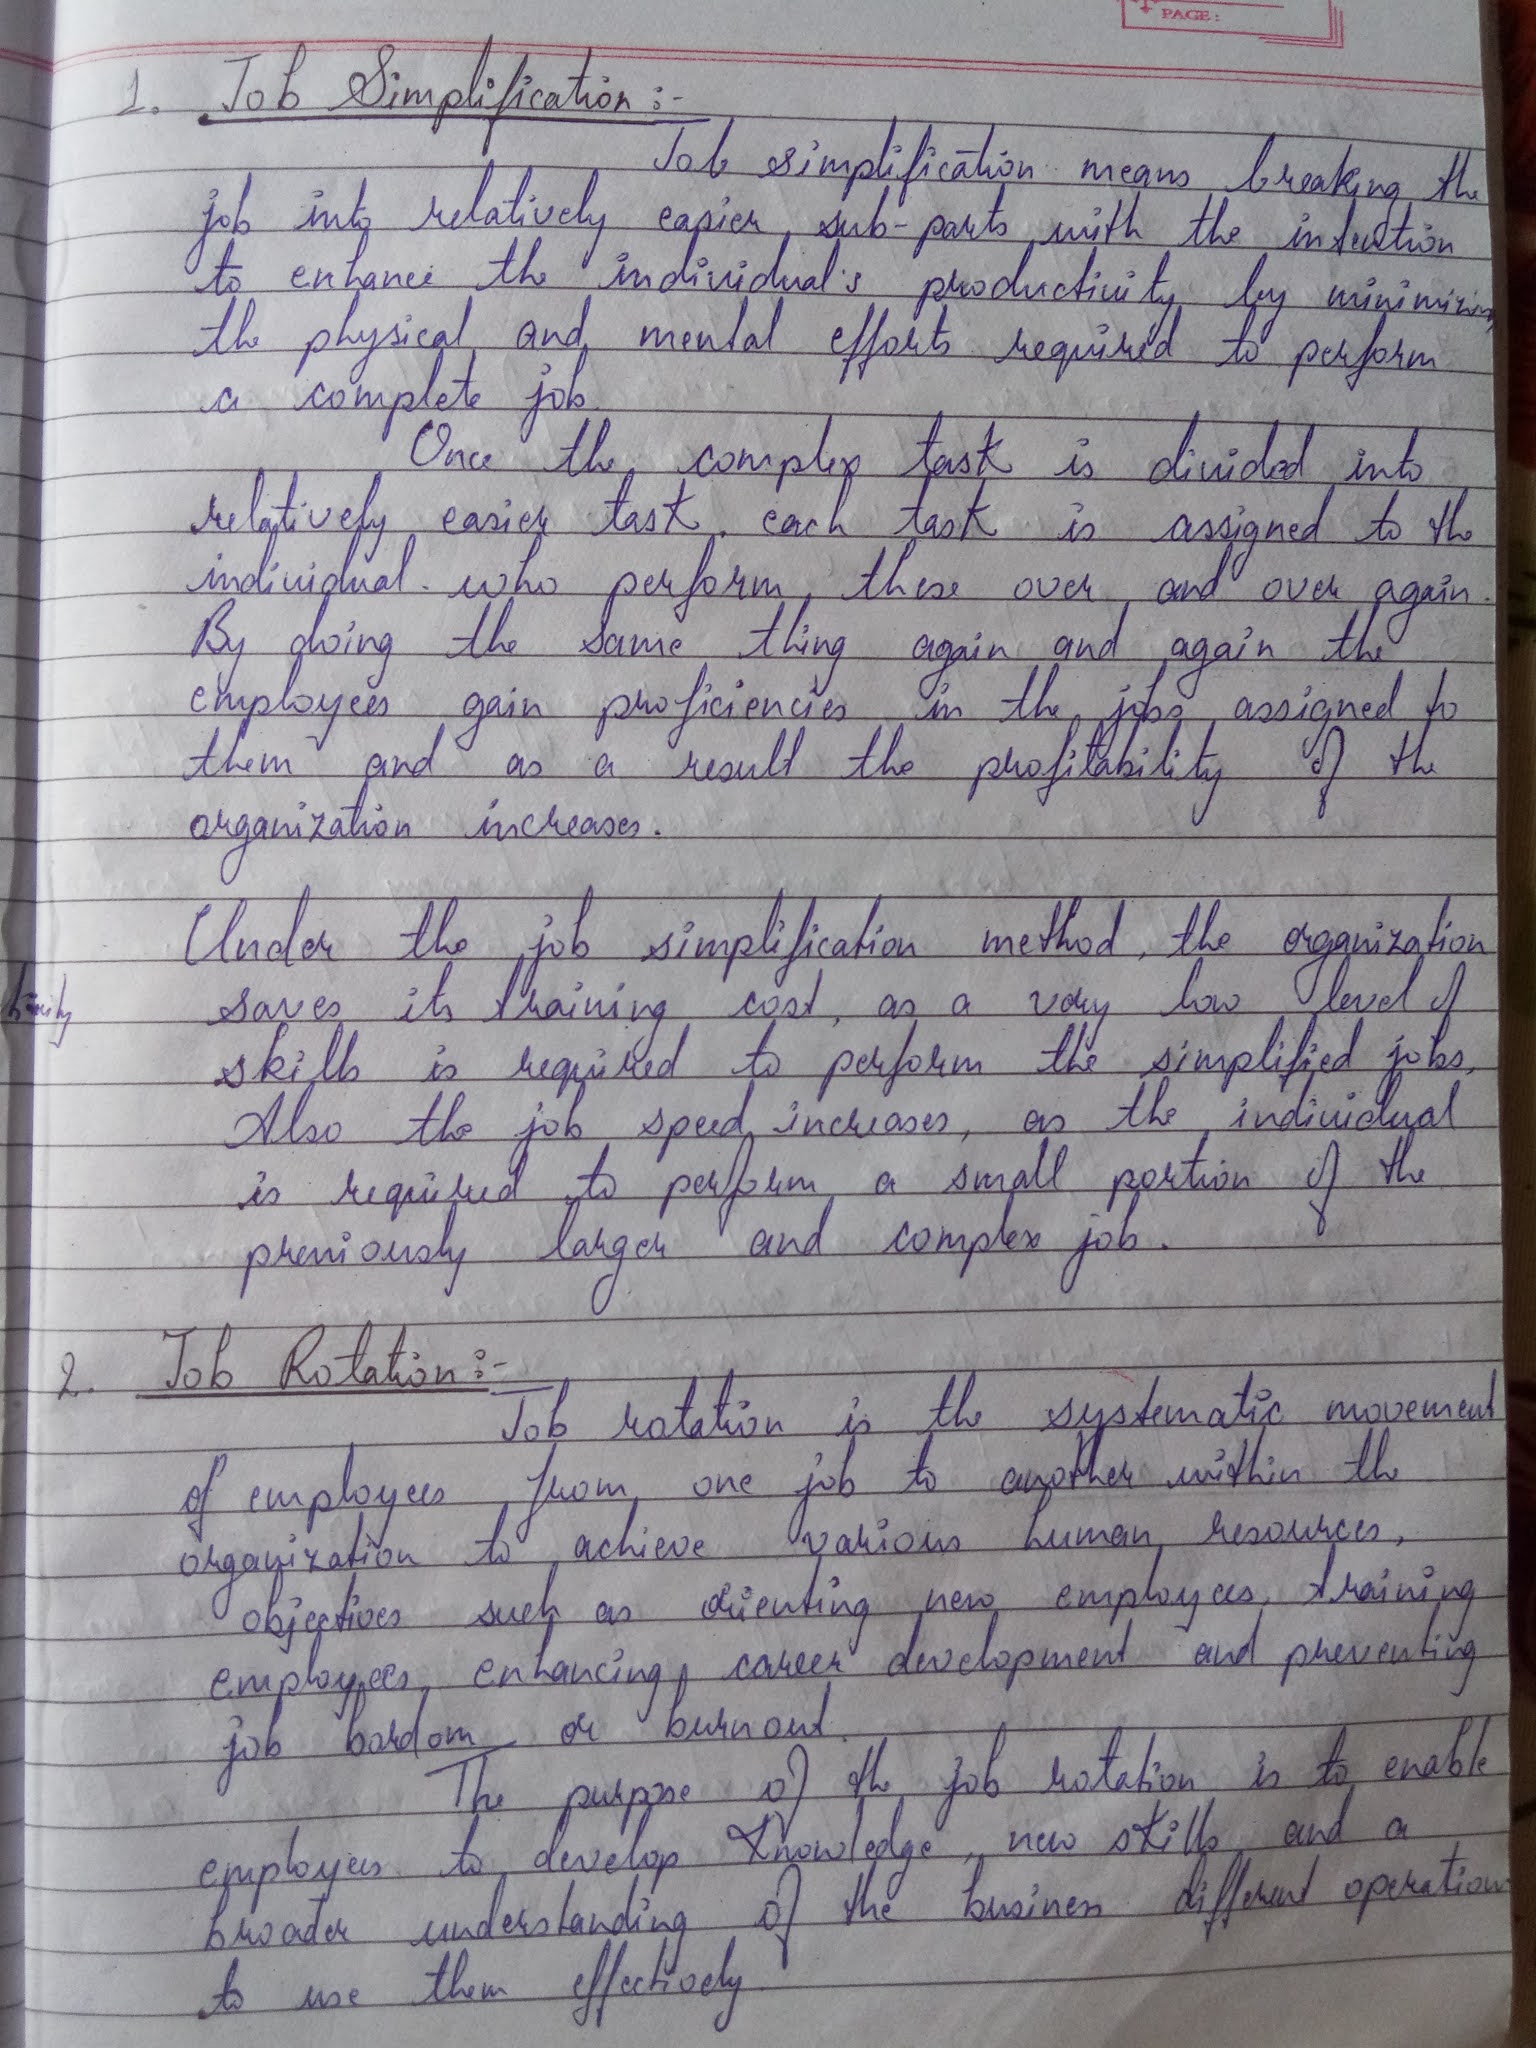 PAGE:
1. Job Simplification :-
Job simplification means breaking the
job into relatively easier sub-parts with the intention
to enhance the individual's productivity by minimizing
the physical and mental efforts required to perform
a complete job.
Once the complex task is divided into
relatively easier task, each task is assigned to the
individual who perform these over and over again.
By doing the same thing again and again the
employees gain proficiencies in the jobs assigned to
them and as a result the profitability of the
organization increases.
Under the job simplification method, the organization
saves its training cost, as a very low level of
skills is required to perform the simplified jobs.
Also the job speed increases, as the individual
is required to perform a small portion of the
previously larger and complex job.
2. Job Rotation :-
Job rotation is the systematic movement
of employees from one job to another within the
organization to achieve various human resources,
objectives such as orienting new employees, training
employees, enhancing career development and preventing
job bordom or burnout.
The purpose of the job rotation is to enable
employees to develop knowledge, new skills and a
broader understanding of the business different operation
to use them effectively